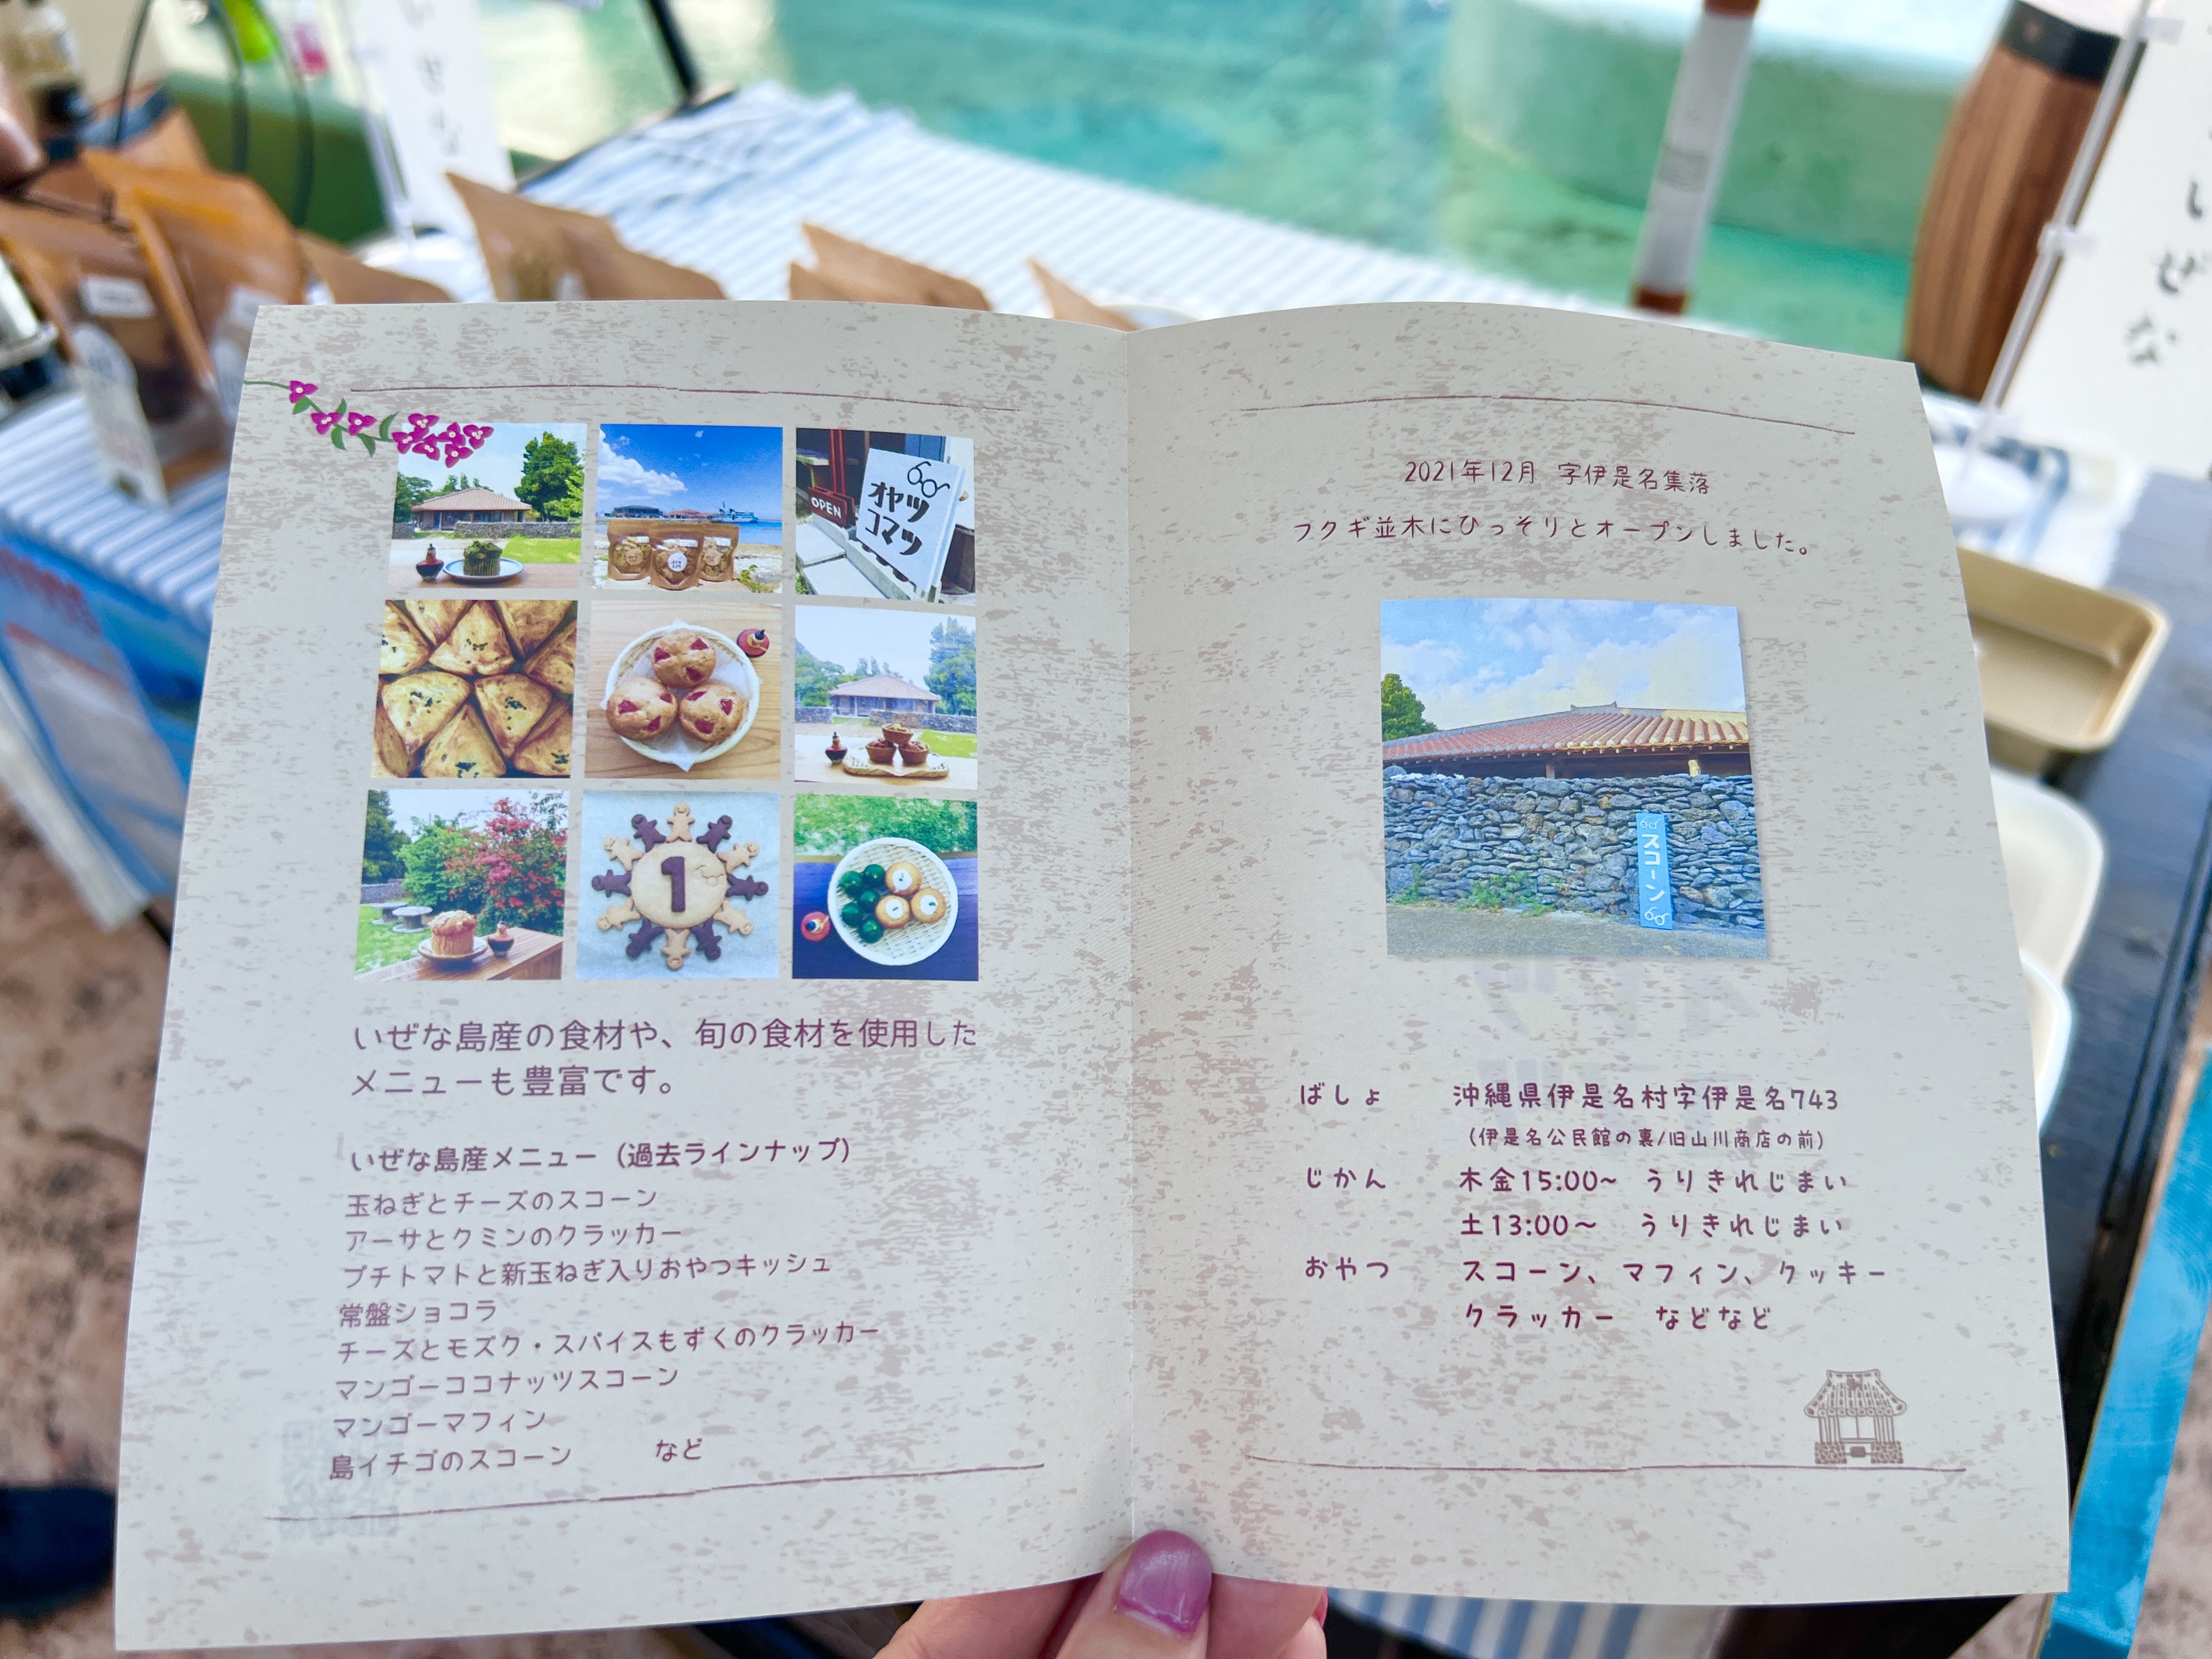 いぜな
いぜな
OPEN
オヤツ
コマツ
1
いぜな島産の食材や、旬の食材を使用した
メニューも豊富です。
いぜな島産メニュー（過去ラインナップ）
玉ねぎとチーズのスコーン
アーサとクミンのクラッカー
プチトマトと新玉ねぎ入りおやつキッシュ
常盤ショコラ
チーズとモズク・スパイスもずくのクラッカー
マンゴーココナッツスコーン
マンゴーマフィン
島イチゴのスコーン　など
2021年12月 字伊是名集落
フクギ並木にひっそりとオープンしました。
スコーン
ばしょ 沖縄県伊是名村字伊是名743
（伊是名公民館の裏/旧山川商店の前）
じかん 木金15:00~ うりきれじまい
土13:00~ うりきれじまい
おやつ スコーン、マフィン、クッキー
クラッカー などなど